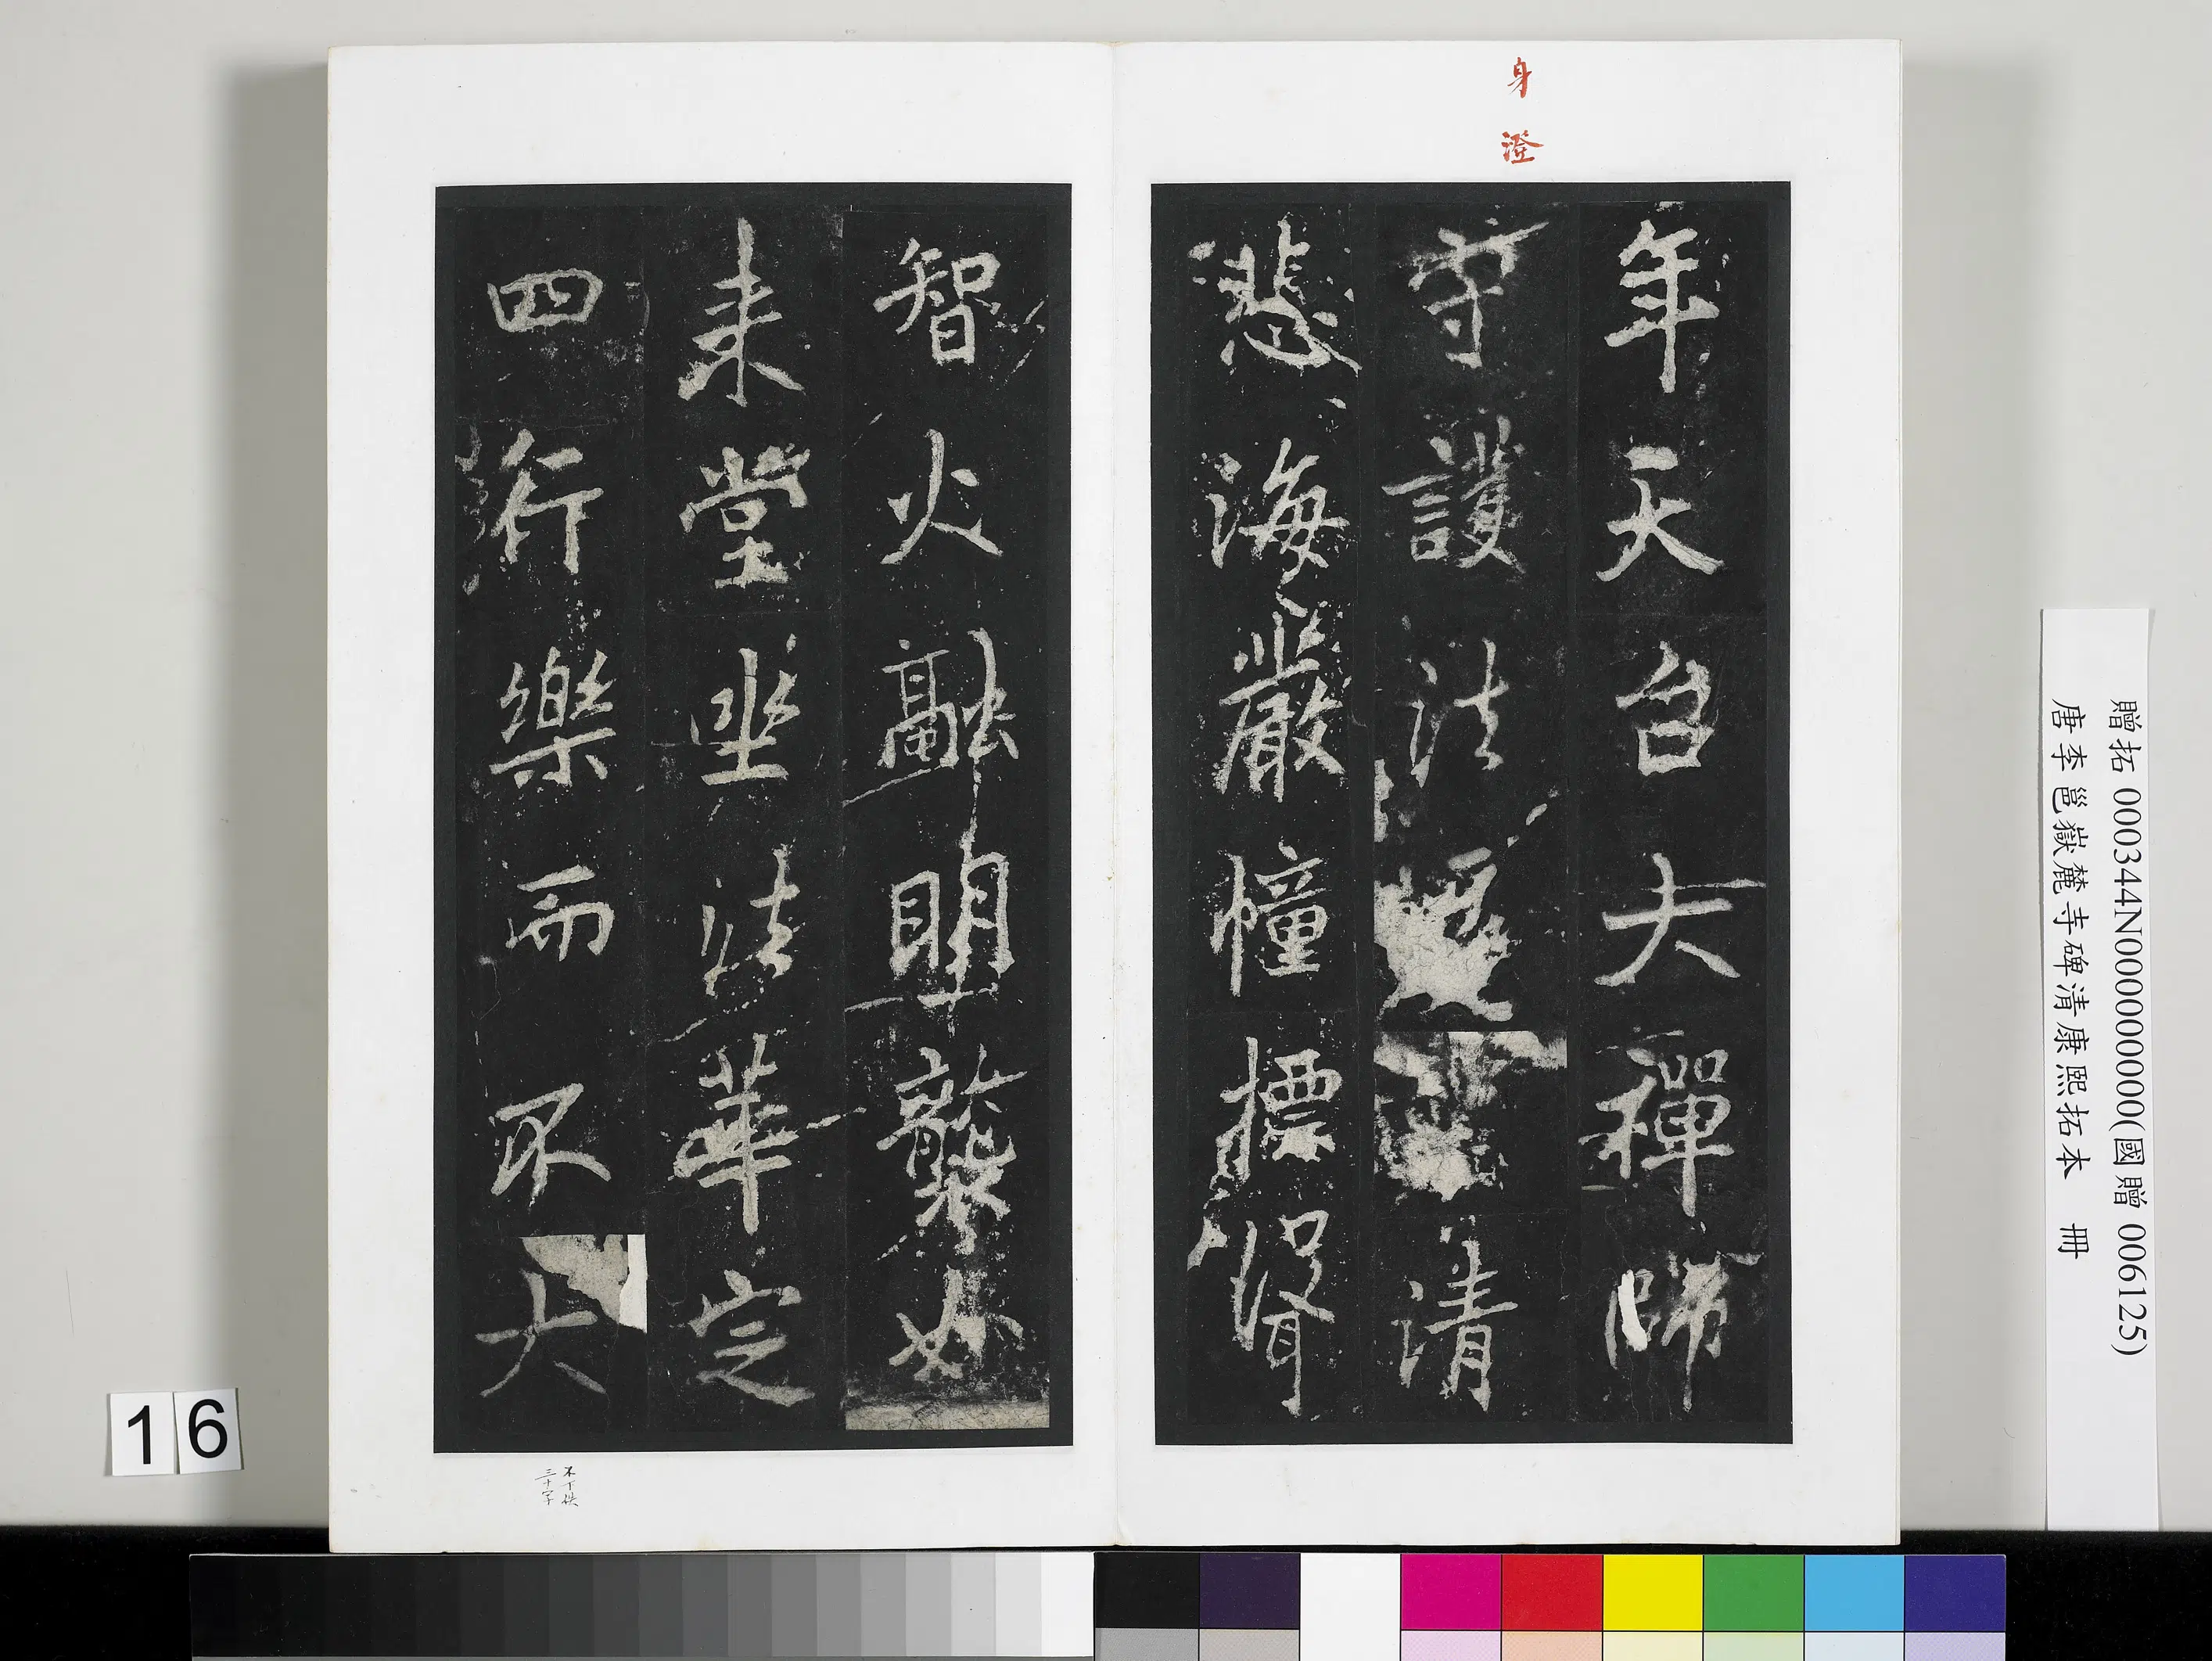 身
澄
年天台大禪師
守護法
清
悲海嚴幢標聳
智火融明襲如
來堂坐法華定
四行樂而不
大
三十字
贈拓 000344N000000000(國贈 006125)
唐李邕嶽麓寺碑清康熙拓本 冊
16